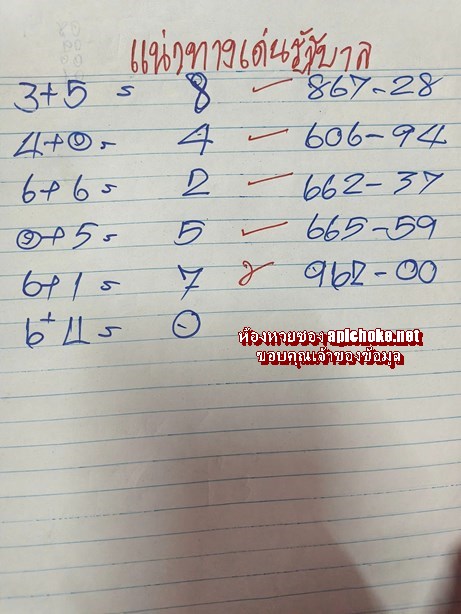 แนวทางเด่นรัฐบาล
3+5 = 8 ✓ 867-28
4+0= 4 ✓ 606-94
6+6= 2 ✓ 662-37
0+5= 5 ✓ 665-59
6+1= 7 x 962-00
6+4= 0
ห้องหวยซอง apichoke.net
ขอบคุณเจ้าของข้อมูล